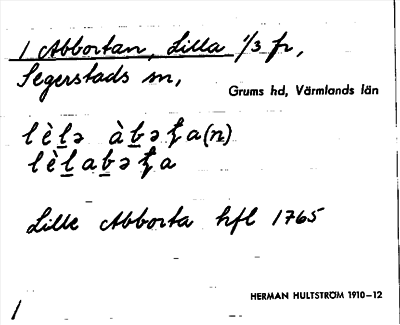 1 Abbortan, Lilla 1/3 fr,
Segerstads sn,
Grums hd, Värmlands län
lèḻə àḇəţa(n)
lèḻaḇəţa
Lille Abborta hfl 1765
HERMAN HULTSTRÖM 1910–12
1